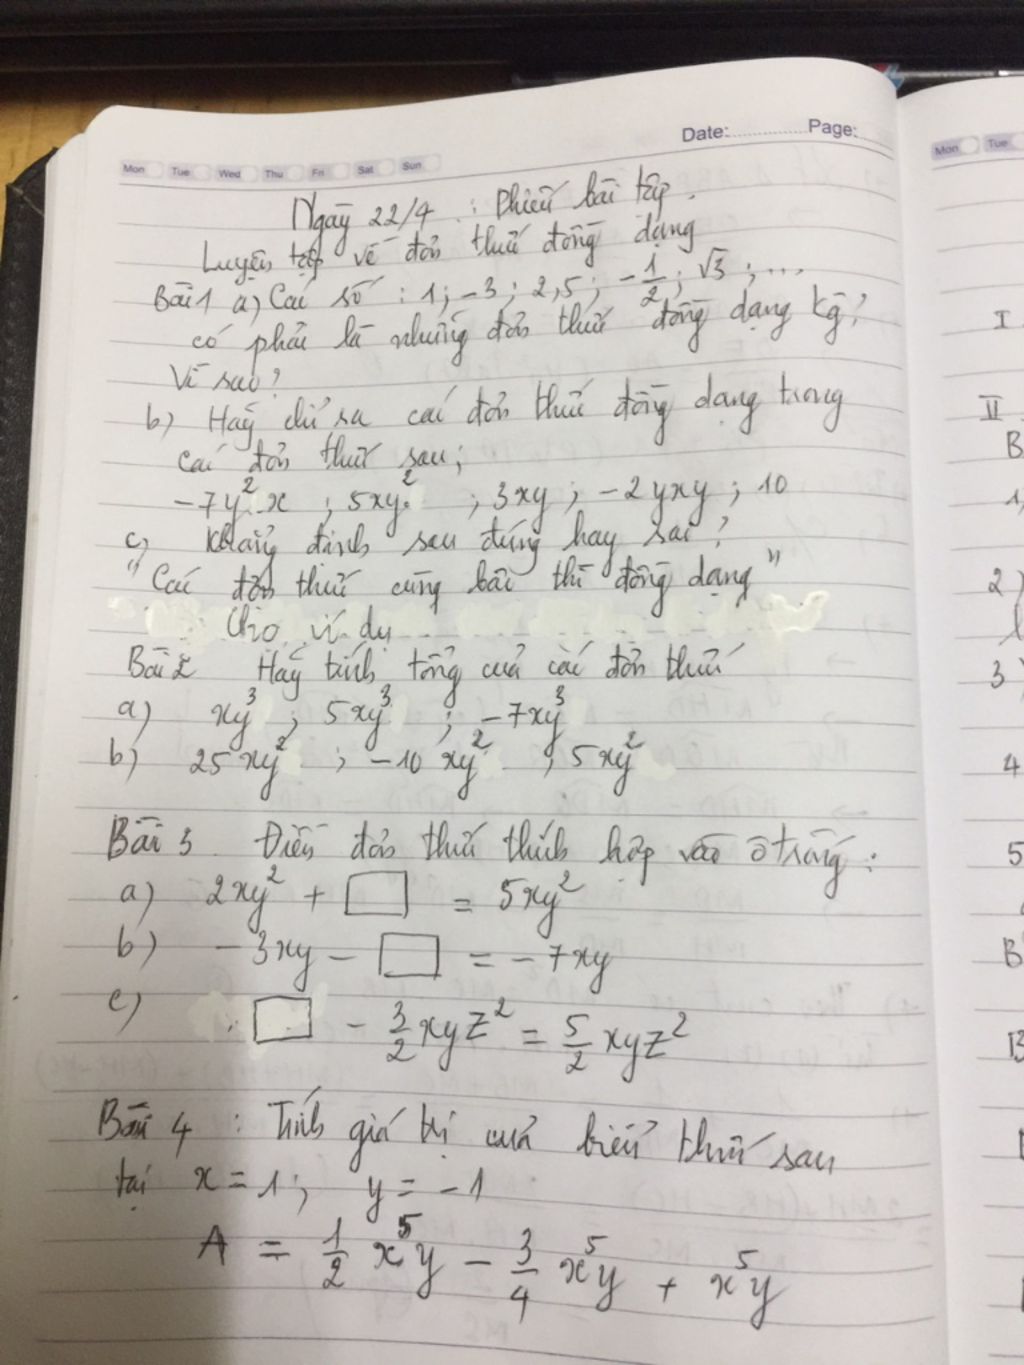 Date: Page:
Mon Tue Wed Thu Fri Sat Sun
Ngày 22/4 : Phiếu bài tập.
Luyện tập về đơn thức đồng dạng
Bài 1 a) Các số : 1; -3; 2,5; -1/2; √3; ...
có phải là những đơn thức đồng dạng kg?
Vì sao?
b) Hãy chỉ ra các đơn thức đồng dạng trong
các đơn thức sau;
-7y²x ; 5xy² ; 3xy ; -2yxy ; 10
c) Khẳng định sau đúng hay sai?
"Các đơn thức cùng bậc thì đồng dạng"
Cho ví dụ
Bài 2 Hãy tính tổng của các đơn thức
a) xy³ ; 5xy³ ; -7xy³
b) 25xy² ; -10xy² ; 5xy²
Bài 3 Điền đơn thức thích hợp vào ô trống:
a) 2xy² + □ = 5xy²
b) -3xy - □ = -7xy
c) □ - 3/2 xyz² = 5/2 xyz²
Bài 4 : Tính giá trị của biểu thức sau
tại x = 1; y = -1
A = 1/2 x⁵y - 3/4 x⁵y + x⁵y
Mon Tue
I
II
B
1
2)
3
4
5
B